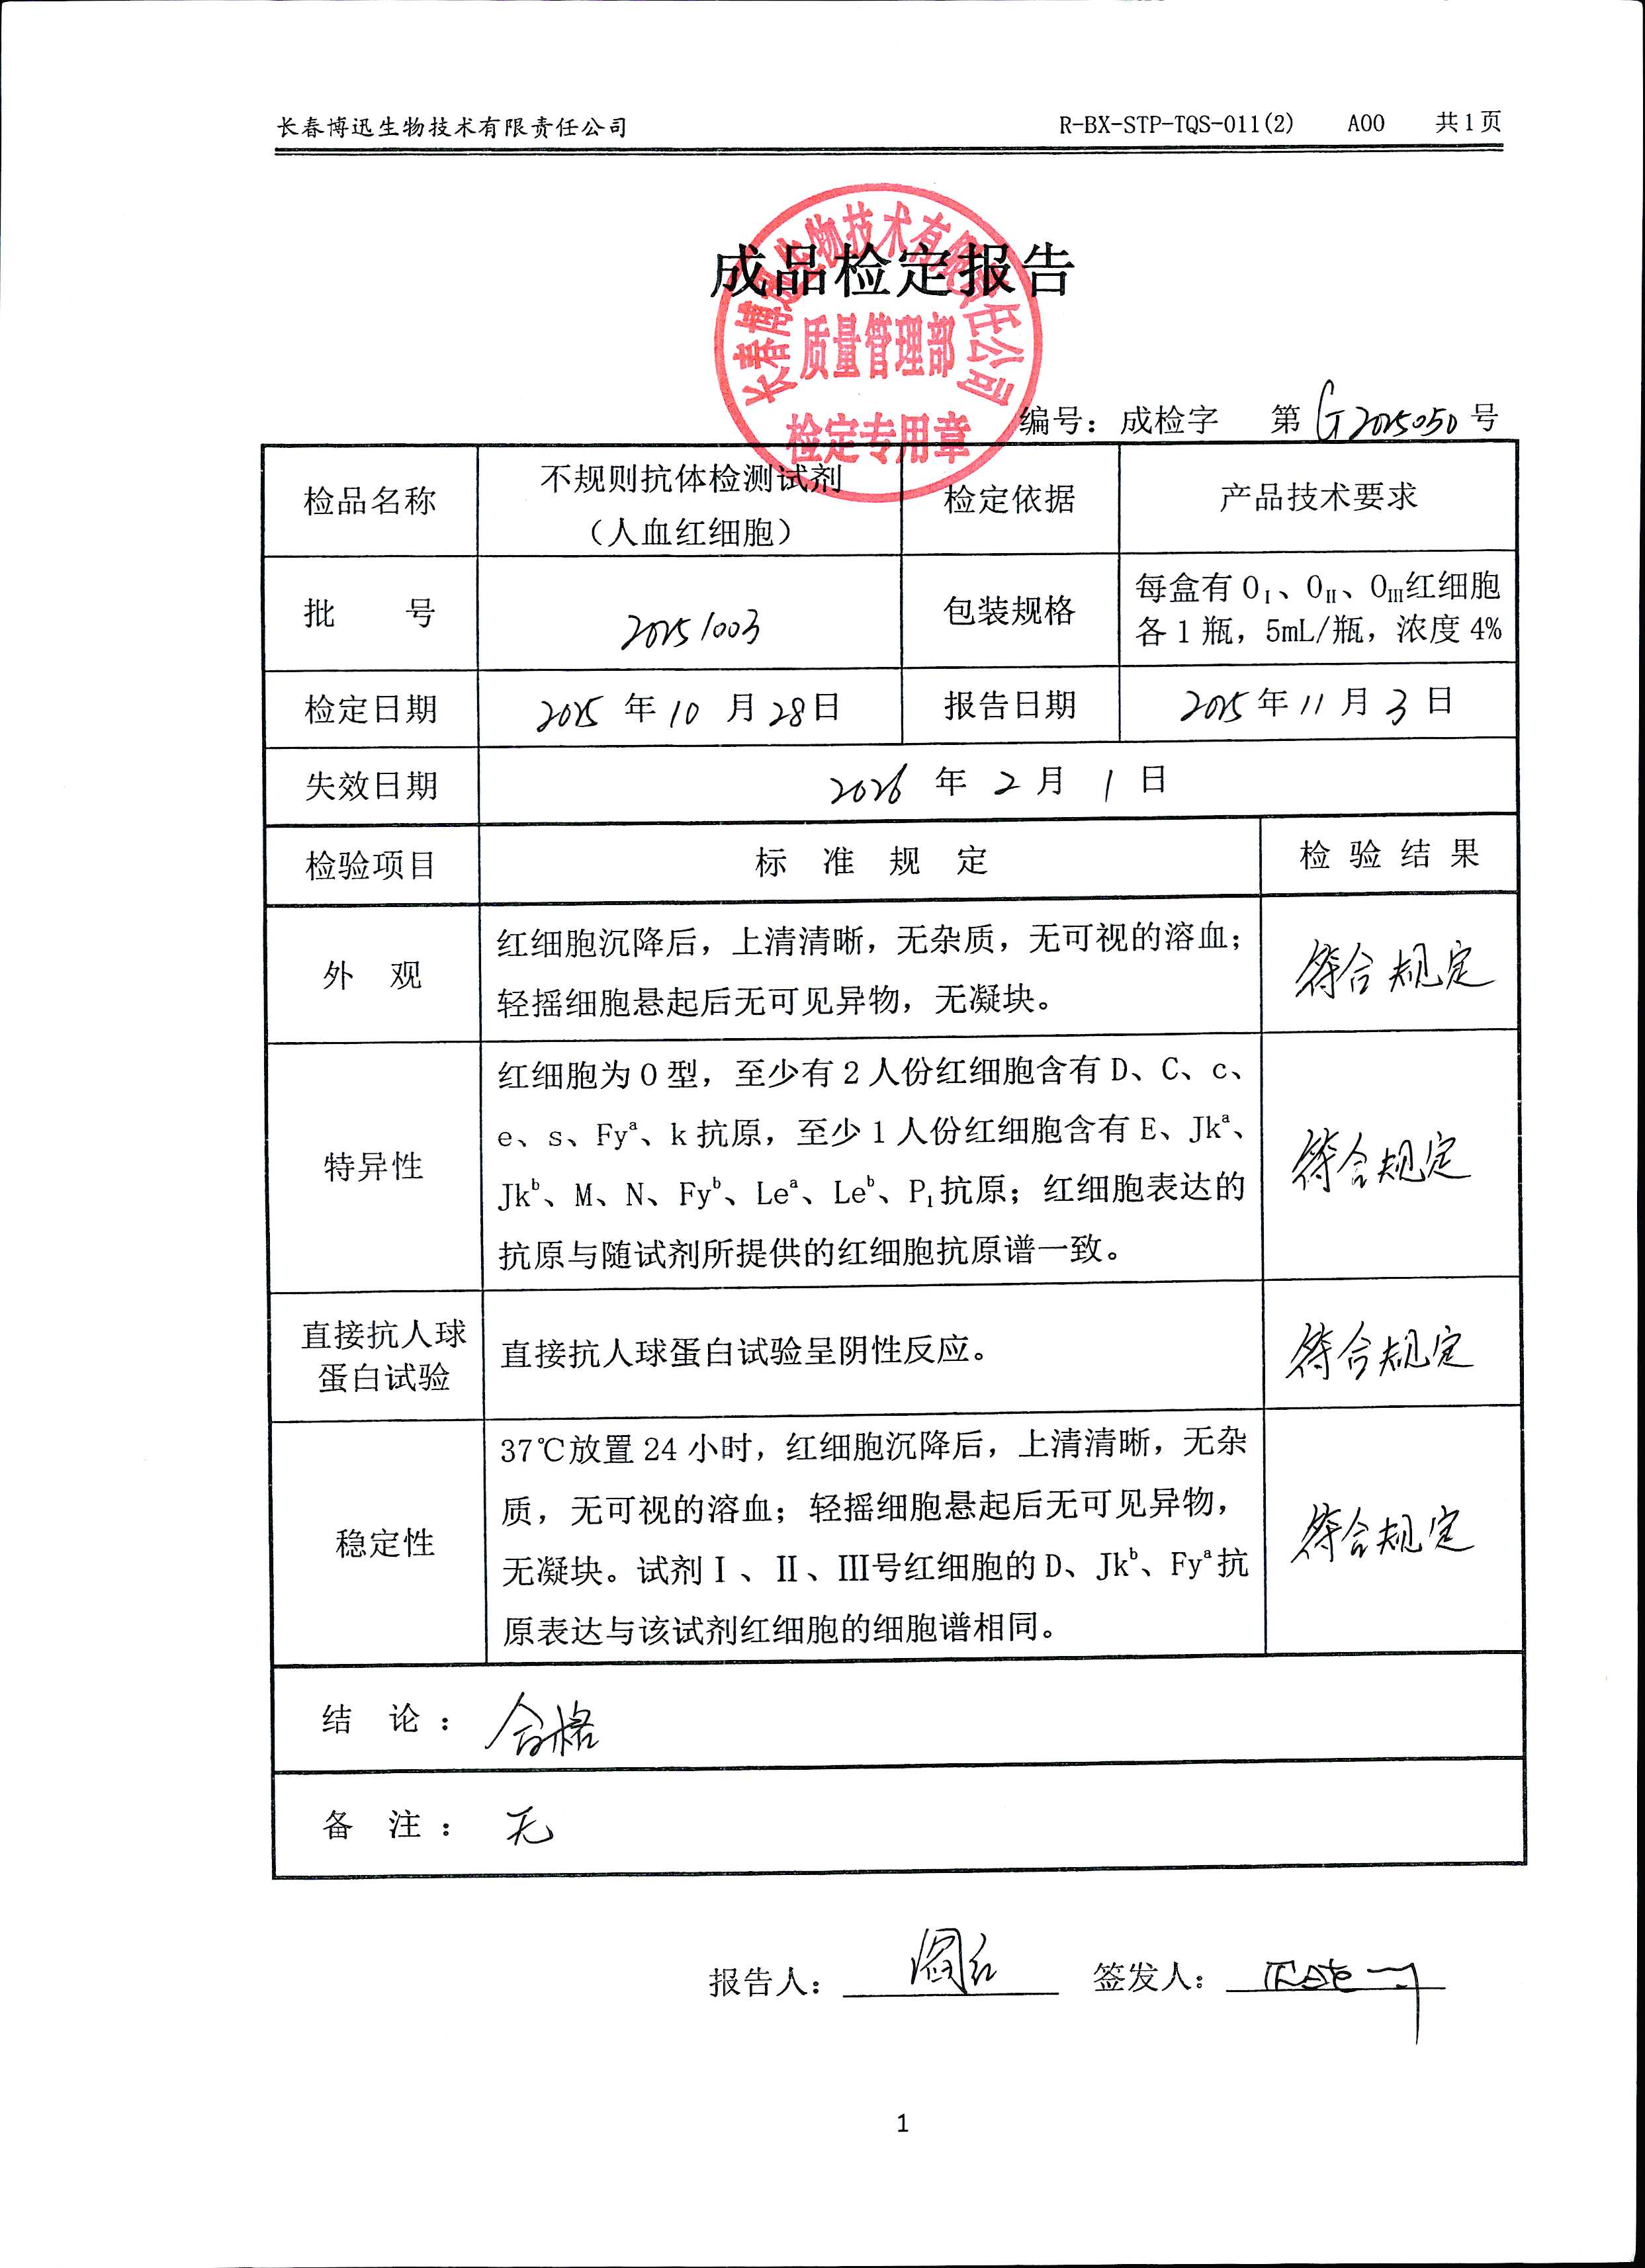 长春博迅生物技术有限责任公司 R-BX-STP-TQS-011(2) A00 共1页
成品检定报告
长春博迅生物技术有限责任公司
质量管理部
检定专用章
编号：成检字 第G2025050号
检品名称 不规则抗体检测试剂（人血红细胞） 检定依据 产品技术要求
批 号 20251003 包装规格 每盒有OⅠ、OⅡ、OⅢ红细胞
各1瓶，5mL/瓶，浓度4%
检定日期 2025年10月28日 报告日期 2025年11月3日
失效日期 2026年2月1日
检验项目 标准规定 检验结果
外 观 红细胞沉降后，上清清晰，无杂质，无可视的溶血；
轻摇细胞悬起后无可见异物，无凝块。 符合规定
特异性 红细胞为O型，至少有2人份红细胞含有D、C、c、
e、s、Fyᵃ、k抗原，至少1人份红细胞含有E、Jkᵃ、
Jkᵇ、M、N、Fyᵇ、Leᵃ、Leᵇ、P₁抗原；红细胞表达的
抗原与随试剂所提供的红细胞抗原谱一致。 符合规定
直接抗人球
蛋白试验 直接抗人球蛋白试验呈阴性反应。 符合规定
稳定性 37℃放置24小时，红细胞沉降后，上清清晰，无杂
质，无可视的溶血；轻摇细胞悬起后无可见异物，
无凝块。试剂Ⅰ、Ⅱ、Ⅲ号红细胞的D、Jkᵇ、Fyᵃ抗
原表达与该试剂红细胞的细胞谱相同。 符合规定
结 论：合格
备 注：无
报告人： 签发人：
1